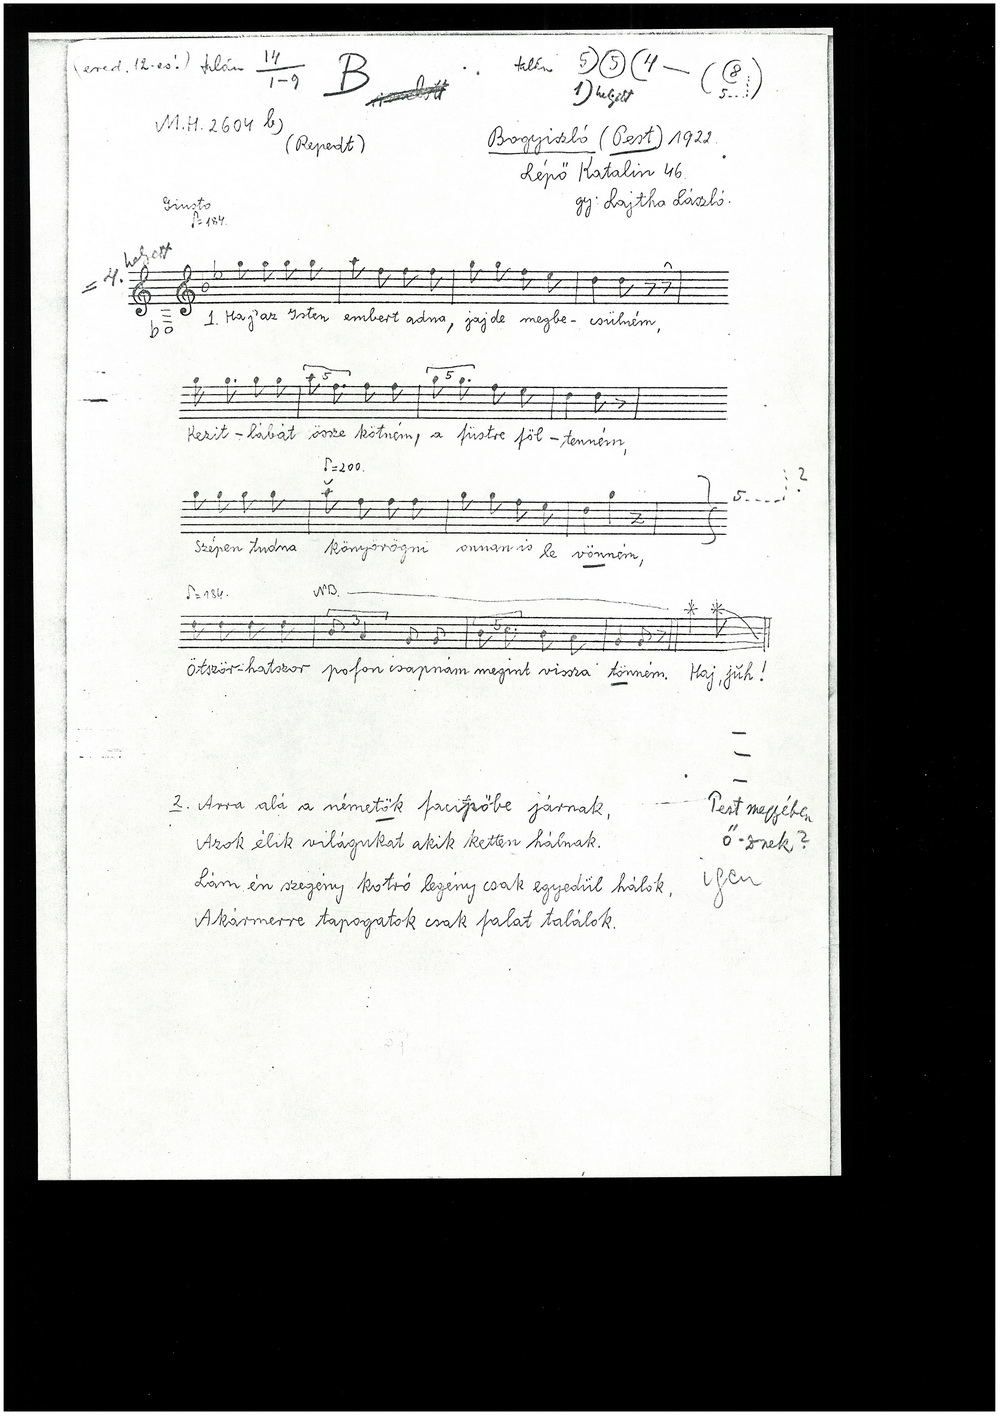 (ered. 12-es!) talán 14/1-9 B talán 5) 5 (4 — (8
1) helyett 5...
M.H. 2604 b)
(Repedt)
Bogyiszló (Pest) 1922.
Lépő Katalin 46.
gy: Lajtha László.
Giusto
♪=184.
= 4. helyett
1. Haj az Isten embert adna, jajde megbe- csülném,
Kezit-lábát össze kötném, a füstre föl-tenném,
♪=200.
Szépen tudna könyörögni onnan is le vönném,
5....?
♪=184. NB.
Ötször-hatszor pofon csapnám megint vissza tönném. Haj, juh!
2. Arra alá a németök facipőbe járnak,
Azok élik világukat akik ketten hálnak.
Lám én szegény kotró legény csak egyedül hálok,
Akármerre tapogatok csak falat találok.
Pest megyében
ő-znek?
igen